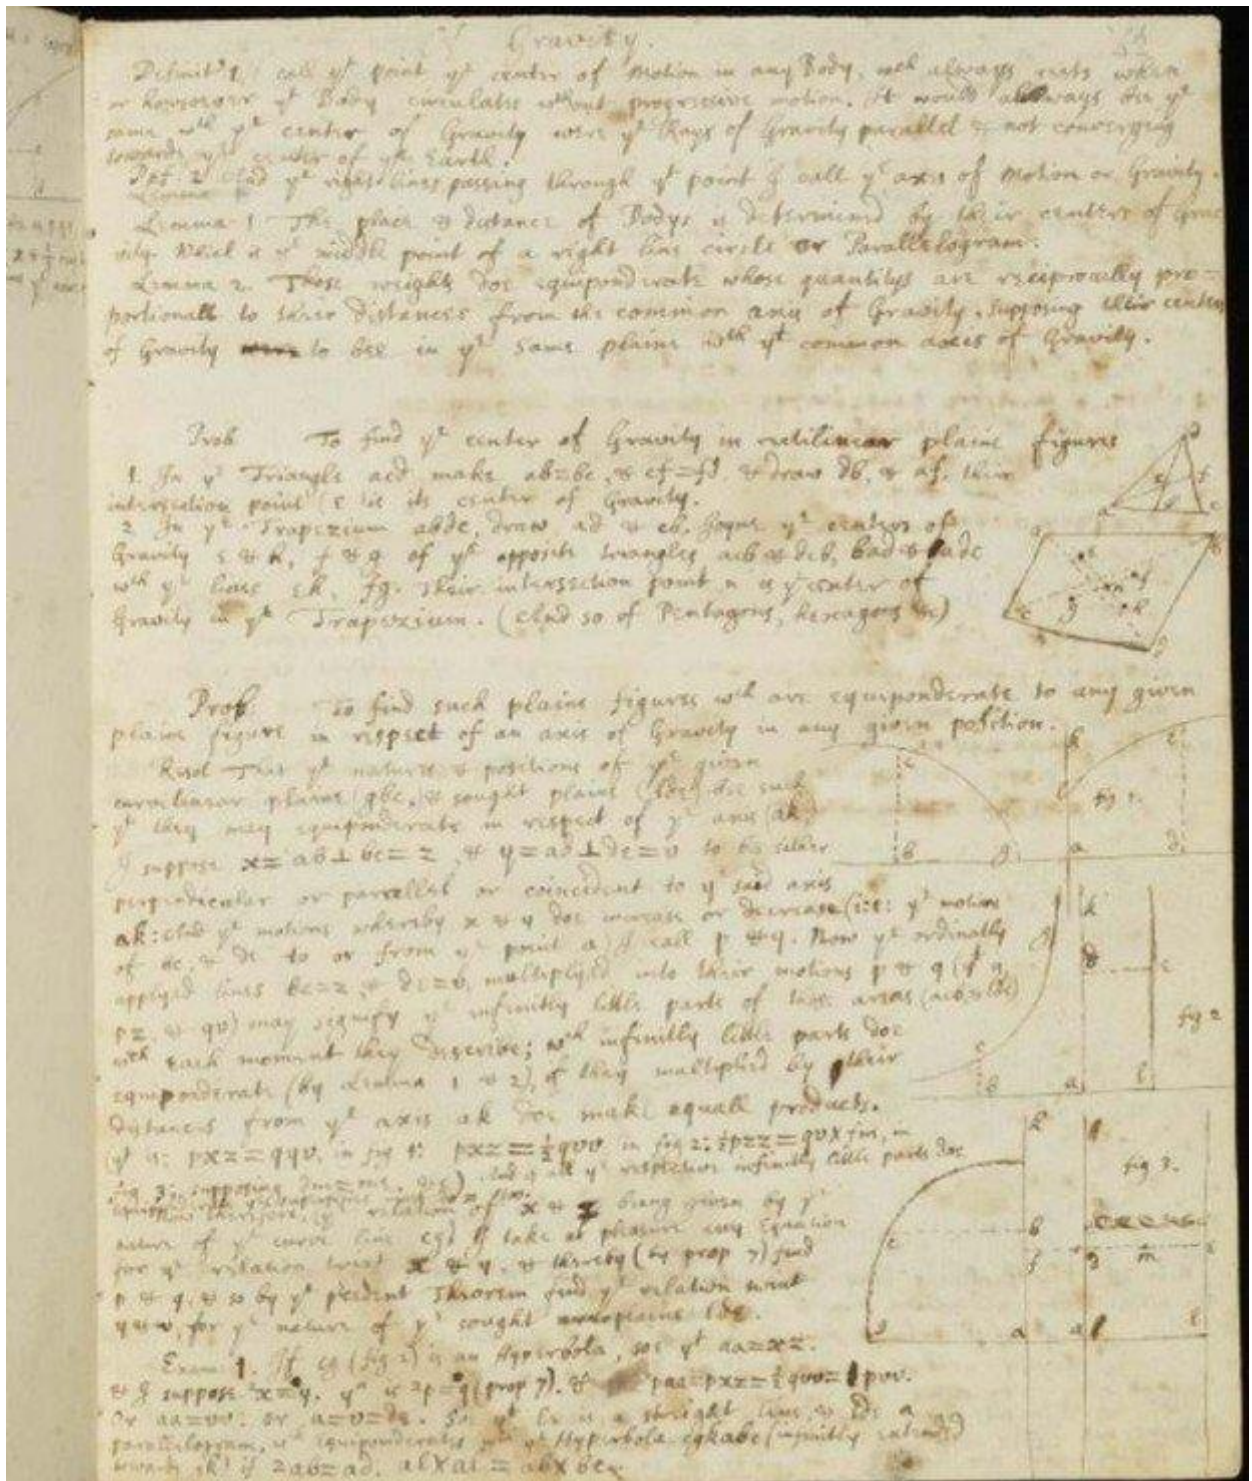 Of Gravity.
Definit 1. I call yt point ye center of Motion in any Body, wch always rests when
or howsoever yt Body circulates wthout progressive motion. It would always bee ye
same wth ye center of Gravity were ye Rays of Gravity parallel & not converging
towards ye center of ye Earth.
2 And ye right lines passing through yt point I call ye axis of Motion or Gravity.
Lemma 1 The place & distance of Bodys is determined by their centers of Gra-
vity. Which is ye middle point of a right line circle or Parallelogram.
Lemma 2. Those weights doe equiponderate whose quantitys are reciprocally pro-
portionall to their distances from the common axis of Gravity, supposing their centers
of Gravity to bee in ye same plaine wth yt common axis of Gravity.
Prob To find ye center of Gravity in rectilinear plaine figures
1. In ye Triangle acd make ab=bc, & cf=fd & draw db, & af, their
intersection point e is its center of Gravity.
2 In ye Trapezium abdc, draw ad & cb. Joyne ye centers of
Gravity e & h, f & g of ye opposite triangles acb & dcb, bad & adc
wth ye lines eh, fg. Their intersection point n is ye center of
Gravity in ye Trapezium. (And so of Pentagons, hexagons &c)
Prob To find such plaine figures wch are equiponderate to any given
plaine figure in respect of an axis of Gravity in any given position.
Resol That ye natures & positions of ye given
curvilinear plaine (gbc,) & sought plaine (lde) bee such
yt they may equiponderate in respect of ye axis (ak)
I suppose x=ab⊥bc=z, & y=ad⊥de=v to be either
perpendicular or parallel or coincident to ye said axis
ak: And ye motions whereby x & y doe increase or decrease (i:e: ye motions
of bc, & de to or from ye point a) I call p & q. Now ye ordinately
applyed lines bc=z, & de=v, multiplyed into their motions p & q (yt is
pz, & qv) may signify ye infinitly little parts of those areas (acb & lde)
wch each moment they describe; wch infinitly little parts doe
equiponderate (by Lemma 1 & 2), if they multiplied by their
distances from ye axis ak doe make equall products.
(yt is: pxz=qyv, in fig 1: pxz=½qvv in fig 2: ½pzz=qv×fm, in
fig 3: supposing ) And if all ye respective infinitly little parts doe
equiponderate
Now therefore, ye relation of x & z being given by ye
nature of ye curve line cg I take at pleasure any Equation
for ye relation twixt x & y, & thereby (by prop 7) find
p & q, & so by ye precedent Theorem find ye relation twixt
y & v, for ye nature of ye sought plaine lde.
Exam: 1. If cg (fig 2) is an Hyperbola, soe yt aa=xz.
& I suppose 2x=y. yn is 2p=q (prop 7). & paa=pxz=½qvv=pvv.
Or aa=vv: or, a=v=de. So yt le is a streight line, & lde a
parallelogram, wch equiponderates wth ye Hyperbola cgkabc (infinitly extended
towards gk) if 2ab=ad. al×al=ab×bc.
fig 1.
fig 2
fig 3.